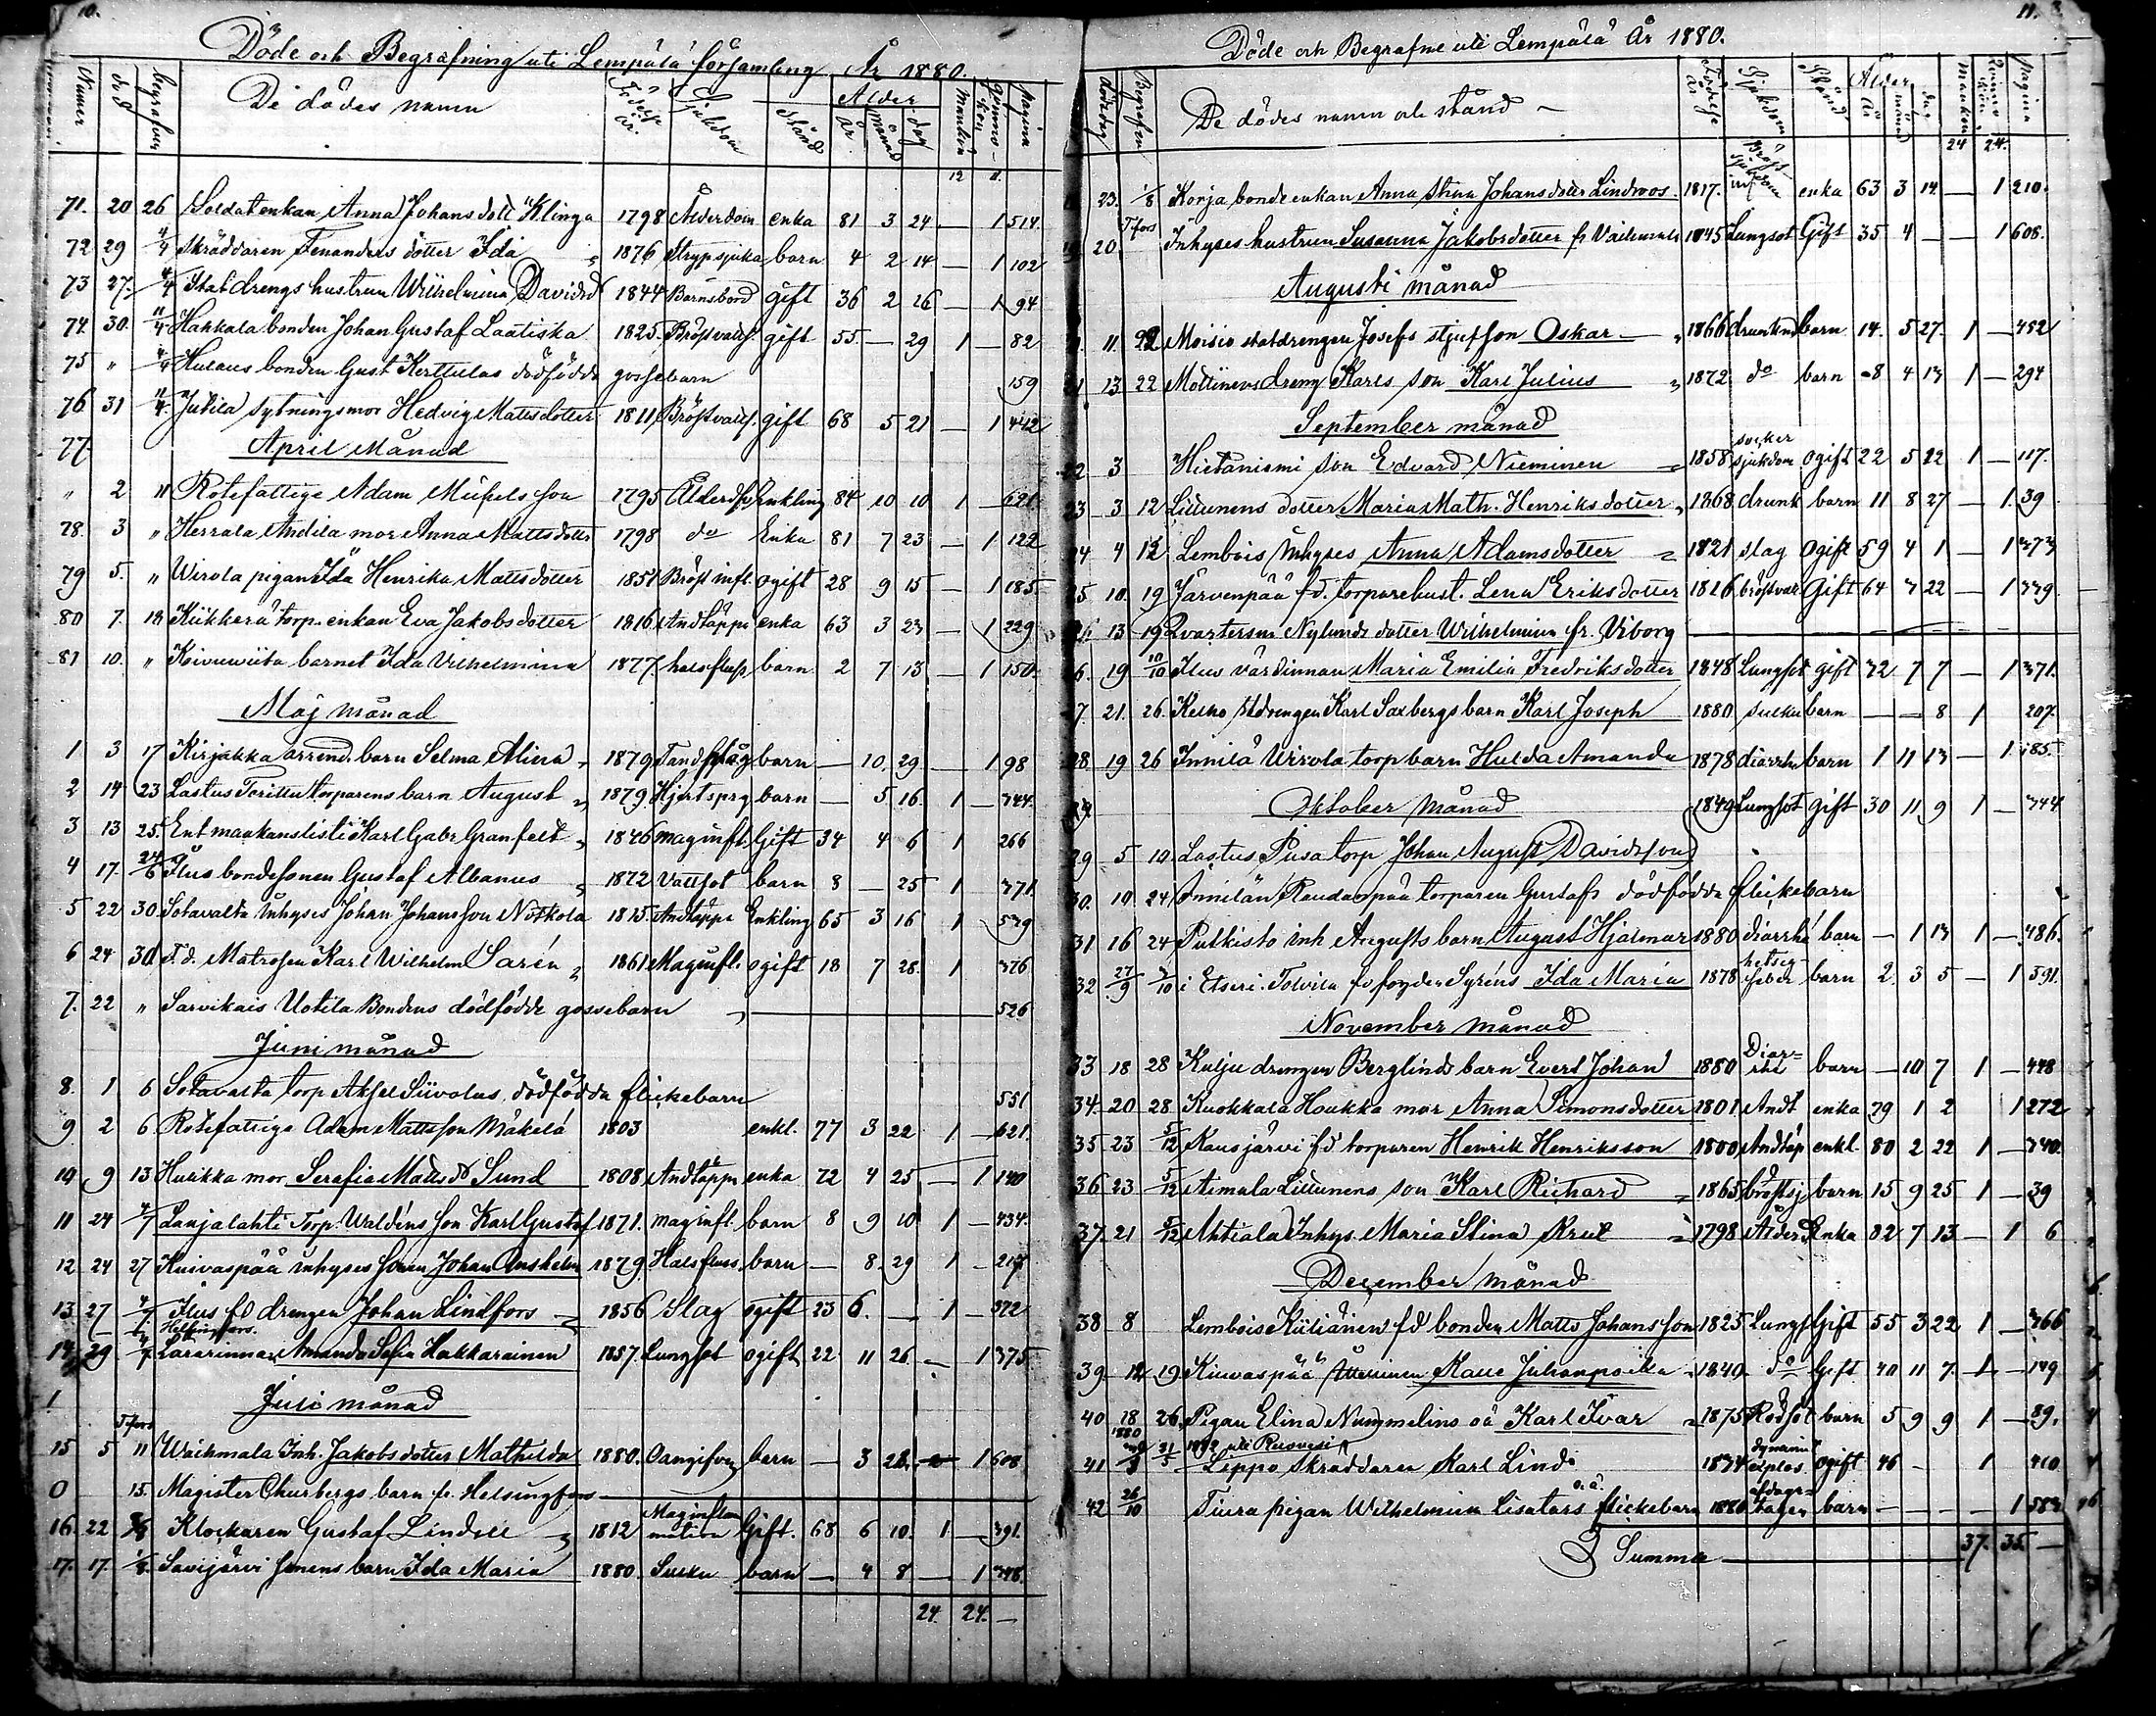 10.
Döde och Begrafning uti Lempälä församling År 1880.
Numer död begrafven De dödes namn Födelse år. Sjukdom Stånd Ålder år. månad dag Mankön Qvinnokön Pagina
12 11.
71. 20 26 Soldatenkan Anna Johansdott Klinga 1798 Ålderdom enka 81 3 24 — 1 514
72 29 4/4 Skräddaren Fenanders dotter Ida 1876 Strypsjuka barn 4 2 14 — 1 102
73 27. 4/4 Statdrengs hustrun Wilhelmina Davidsd 1844 Barnsbörd gift 36 2 26 — 1 94
74. 30. 4/4 Hakkala bonden Johan Gustaf Laatiska 1825. Bröstvattus. gift 55. — 29 1 — 82
75 " 4/4 Kulaus bonden Gust Kerttulas dödfödda gossebarn 159
76 31 4/4 Jutila sytningsmor Hedvig Mattsdotter 1811 Bröstvatts. gift 68 5 21 — 1 442
77. April Månad
" 2 11 Rotefattige Adam Mickelsson 1795 Ålderd. Enkling 84 10 10 1 — 621
78. 3 " Herrala Andila mor Anna Mattsdotter 1798 do Enka 81 7 23 — 1 122
79 5. " Wirola pigan Ida Henrika Mattsdotter 1851 Bröst infl. ogift 28 9 15 — 1 185.
80 7. 18 Kukkerä torp. enkan Eva Jakobsdotter 1816 Andtäppa enka 63 3 23 — 1 229
81 10. " Koivuwiita barnet Ida Vilhelmina 1877. halsflusf barn 2 7 13 — 1 150.
Maj månad
1 3 17 Kirjakka arrend. barn Selma Alina 1879 Tandspråg barn — 10. 29 — 1 98
2 14 23 Lastus Torittu torparens barn August 1879 Hjertsprg barn — 5 16. 1 — 344.
3 13 25. Entmaakanslisti Karl Gabr Granfelt 1846 maginft. Gift 34 4 6 1 266
4 17. 24/6 Ilus bondesonen Gustaf Albanus 1872 Vattsot barn 8 — 25 1 371.
5 22 30. Sotavalta Inhyses Johan Johansson Notkola 1815. Andtäppa Enkling 65 3 16 1 539
6 24 30. F.d. Matrosen Karl Wilhelm Sarén 1861. Maginfl. ogift 18 7 28. 1 376
7. 22 " Sarvikais Uotila Bondens dödfödde gossebarn 526
Juni månad
8. 1 6 Sotavalta torp Aksel Siivolas dödfödda flickebarn 551
9 2 6. Rotefattige Adam Mattsson Mäkelä 1803 enkl. 77 3 22 1 — 621.
10 9 13 Hulikka mor Serafia Matts dr Sund 1808 Andtäppa enka 72 4 25 — 1 140
11 24 4/7 Laujalahti Torp. Waldéns son Karl Gustaf 1871. maginfl. barn 8 9 10 1 — 434.
12 24 27 Kuivaspää inhyses sonen Johan Anshelm 1879. Halsfluss. barn — 8. 29 1 — 217
13. 27 4/7 Ilus fd drengen Johan Lindfors 1856 Slag ogift 23 6. — 1 — 372
Helsingfors.
14 29 4/7 Lärarinnan Amanda Sofia Hakkarainen 1857. Lungsot ogift 22 11 26 — 1 375
Juli månad
T.fors
15 5 11 Waihmala Inh. Jakobs dotter Mathilda 1880. Oangifven barn — 3 28. 1 608
0 15. Magister Churbergs barn fr. Helsingfors
16. 22 Klockaren Gustaf Lindell 1812 Maginflammation Gift. 68 6 10. 1 — 391.
17. 17. 1/8. Savijärvi smens barn Ida Maria 1880. Sucku barn — 4 8 — 1 348.
24. 24. —
11.
Döde och Begrafne uti Lempälä År 1880.
Dödsdag Begrafven De dödes namn och stånd — Födelse år Sjukdom Stånd Ålder år månad dag Mankön Qvinnokön Pagina
24 24.
23. 1/8 Korja bondeenkan Anna Stina Johansdotter Lindroos 1817. Bröstsjukdom enka 63 3 14 — 1 210.
T.fors
20. Inhyses hustrun Susanna Jakobsdotter fr Vaihmala 1845 Lungsot Gift 35 4 — — 1 608.
Augusti månad
11. 22 Moisio statdrengen Josefs stjufson Oskar 1866 drunknad barn 14. 5 27. 1 — 482
13 22 Mottinens dreng Karls son Karl Julius 1872. do barn 8 4 13 1 — 294
September månad
22 3 Hietaniemi son Edvard Nieminen 1858 socker sjukdom Ogift 22 5 22 1 — 117.
23 3 12 Littunens dotter Maria Math. Henriksdotter 1868 drunk barn 11 8 27 — 1. 39
24 4 12 Lembois Inhyses Anna Adamsdotter 1821 slag Ogift 59 4 1 — 1 373
25 10. 19 Järvenpää fd. torparehust. Lena Eriksdotter 1816 bröstvat Gift 64 3 22 — 1 339
13 19 Qvartersm Nylunds dotter Wilhelmina fr. Viborg
26. 19 10/10 Ilus värdinnan Maria Emilia Fredriksdotter 1848 Lungsot gift 32 7 7 — 1 371.
27. 21. 26. Kelho stdrengen Karl Saxbergs barn Karl Joseph 1880 sucku barn — — 8 1 207.
28. 19 26 Innilä Wirola torp barn Hulda Amanda 1878 diarrhe barn 1 11 13 — 1 185.
Oktober månad 1849 Lungsot gift 30 11 9 1 — 344
29 5 10. Lastus Pusa torp Johan August Davidsson
30. 10 24 Innilän Raudanpää torparen Gustafs dödfödda flickebarn
31 16 24 Putkisto inh Augusts barn August Hjalmar 1880 diarrhé barn — 1 13 1 — 486.
32 27/9 3/10 i Etseri. Tolvila fr fogden Syréns Ida Maria 1878 hetsig feber barn 2. 3 5 — 1 591.
November månad
33 18 28 Kulju drengen Berglinds barn Evert Johan 1880 Diarrhé barn — 10 7 1 — 448
34 20 28 Kuokkala Houkka mor Anna Simonsdotter 1801 Andt enka 79 1 2 1 272
35 23 5/12 Kausjärvi fd torparen Henrik Henriksson 1800 Andtäp enkl. 80 2 22 1 — 340.
36 23 5/12 Aimala Littunens son Karl Richard 1865 bröstsj barn 15 9 25 1 — 39
37. 21 5/12 Ahtiala Inhys. Maria Stina Krut 1798 Ålderd Enka 82 7 13 — 1 6
December månad
38 8 Lembois Kiiliäinen fd bonden Matts Johansson 1825 Lungs Gift 55 3 22 1 — 366
39 12 19 Kuivaspää Kalle Juhanpoika 1840 do Gift 40 11 7. 1 — 149
40 18 26 Pigan Elina Nummelins oä Karl Ivar 1875 Rödsot barn 5 9 9 1 — 89.
1880
41 31/5 Lippo Skräddaren Karl Lind 1834 dynamit explos ogift 46 — 1 410
42 26/10 Tiura pigan Wilhelmina Lisatars o.ä. flickebarn 1880 afdagatagen barn — — — — 1 583
Summa 37. 35 —